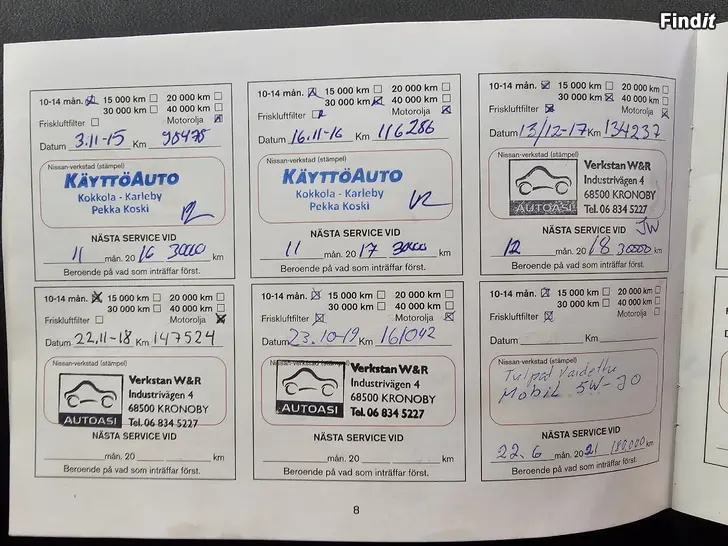 Findit
10-14 mån. 15 000 km 20 000 km
30 000 km 40 000 km
Friskluftfilter Motorolja
Datum 3.11-15 Km 98475
Nissan-verkstad (stämpel)
KÄYTTÖAUTO
Kokkola - Karleby
Pekka Koski
NÄSTA SERVICE VID
11 mån. 20 16 30000 km
Beroende på vad som inträffar först.
10-14 mån. 15 000 km 20 000 km
30 000 km 40 000 km
Friskluftfilter Motorolja
Datum 16.11-16 Km 116286
Nissan-verkstad (stämpel)
KÄYTTÖAUTO
Kokkola - Karleby
Pekka Koski
NÄSTA SERVICE VID
11 mån. 20 17 30000 km
Beroende på vad som inträffar först.
10-14 mån. 15 000 km 20 000 km
30 000 km 40 000 km
Friskluftfilter Motorolja
Datum 13/12-17 Km 134237
Nissan-verkstad (stämpel)
Verkstan W&R
Industrivägen 4
68500 KRONOBY
AUTOASI Tel. 06 834 5227
JW
NÄSTA SERVICE VID
12 mån. 20 18 30000 km
Beroende på vad som inträffar först.
10-14 mån. 15 000 km 20 000 km
30 000 km 40 000 km
Friskluftfilter Motorolja
Datum 22.11-18 Km 147524
Nissan-verkstad (stämpel)
Verkstan W&R
Industrivägen 4
68500 KRONOBY
AUTOASI Tel. 06 834 5227
NÄSTA SERVICE VID
mån. 20 km
Beroende på vad som inträffar först.
10-14 mån. 15 000 km 20 000 km
30 000 km 40 000 km
Friskluftfilter Motorolja
Datum 23.10-19 Km 161042
Nissan-verkstad (stämpel)
Verkstan W&R
Industrivägen 4
68500 KRONOBY
AUTOASI Tel. 06 834 5227
NÄSTA SERVICE VID
mån. 20 km
Beroende på vad som inträffar först.
10-14 mån. 15 000 km 20 000 km
30 000 km 40 000 km
Friskluftfilter Motorolja
Datum Km
Nissan-verkstad (stämpel)
Mobil 5W-30
NÄSTA SERVICE VID
22.6 mån. 20 21 180,000 km
Beroende på vad som inträffar först.
8